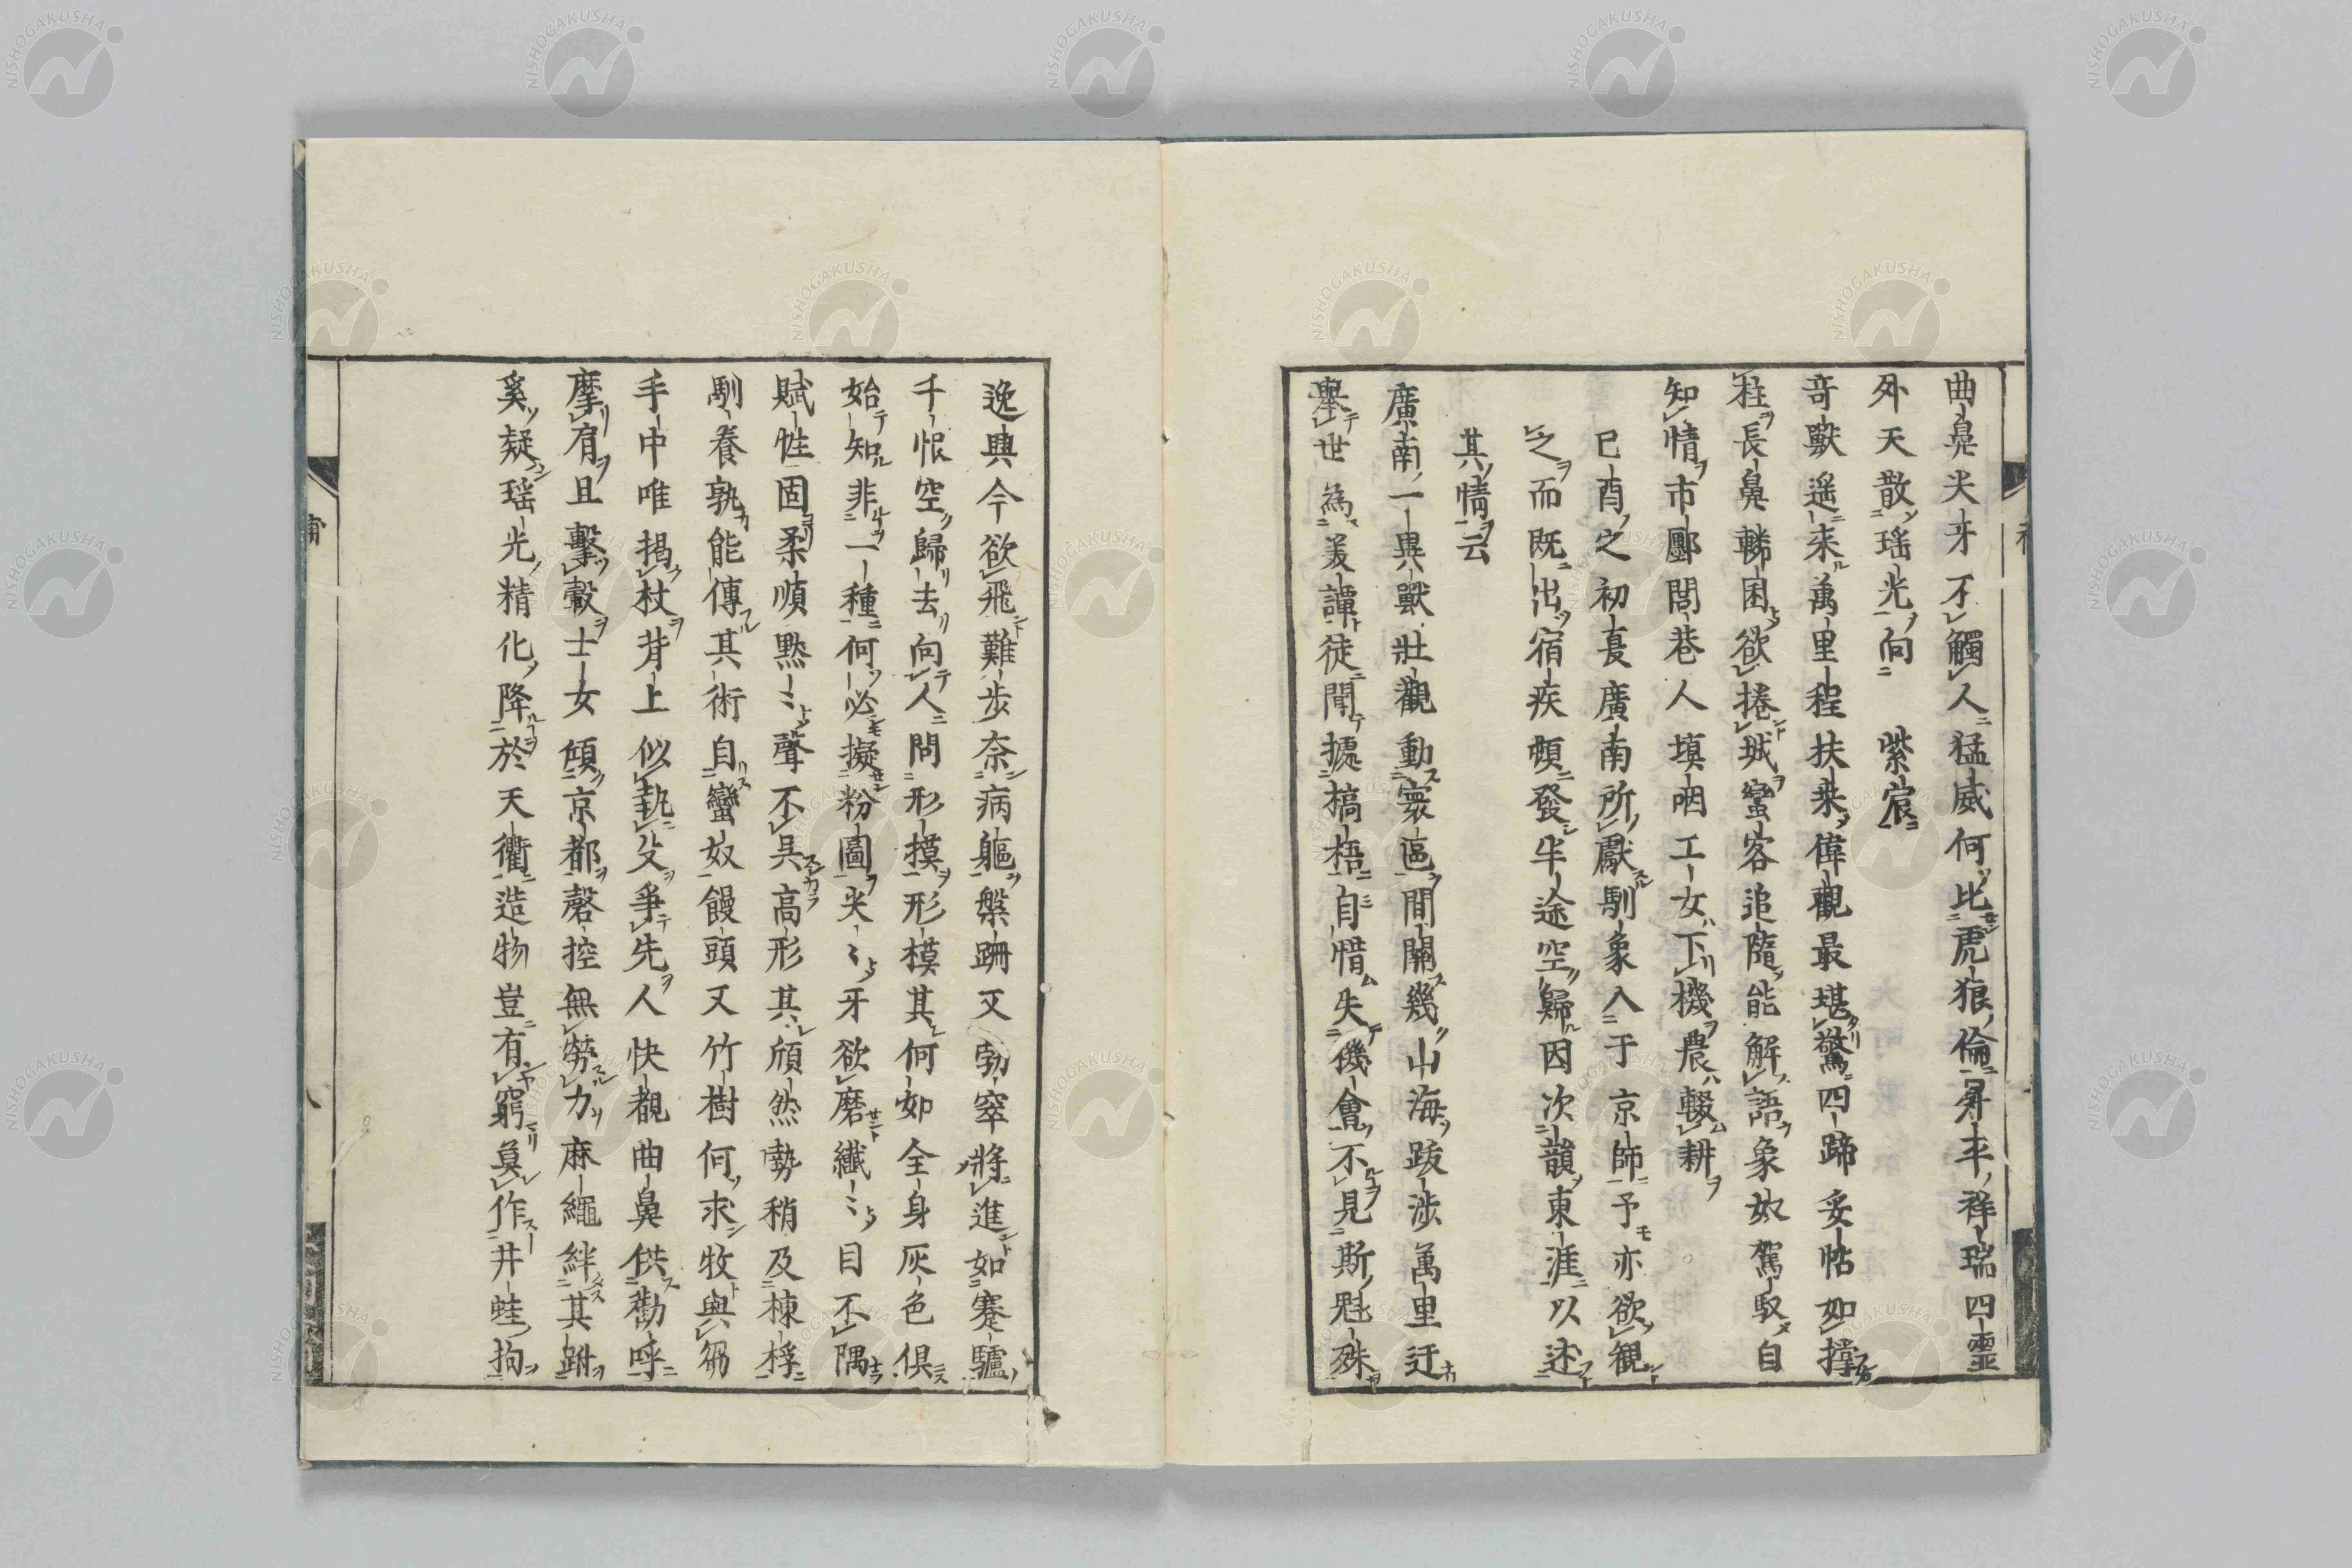 曲鼻尖牙不觸人猛威何比虎狼倫昇平祥瑞四靈
外天散瑤光向　紫宸
奇獸遥来萬里程扶桑偉觀最堪驚四蹄妥帖如撐
柱長鼻轔囷欲捲城蠻客追隨能解語象奴駕馭自
知情市鄽閭巷人塡咽工女下機農輟耕
己酉之初夏廣南所獻馴象入于京師予亦欲観
之而既出宿疾頓發半途空歸因次韻東涯以述
其情云
廣南一異獸壯觀動寰區間關幾山海跋涉萬里迂
舉世為美譚徒聞據槁梧自惜失機會不見斯魁殊
逸興今欲飛難步奈病軀槃跚又勃窣將進如蹇驢
千恨空歸去向人問形摸形模其何如全身灰色俱
始知非一種何必擬粉圖尖〻牙欲磨纖〻目不隅
賦性固柔順黙〻聲不呉高形其頎然勢稍及棟桴
馴養孰能傳其術自蠻奴饅頭又竹樹何求牧與芻
手中唯揭杖背上似執殳爭先人快覩曲鼻供勸呼
摩肩且擊轂士女傾京都磬控無勞力麻繩絆其跗
奚疑瑶光精化降於天衢造物豈有窮莫作井蛙拘
NISHOGAKUSHA